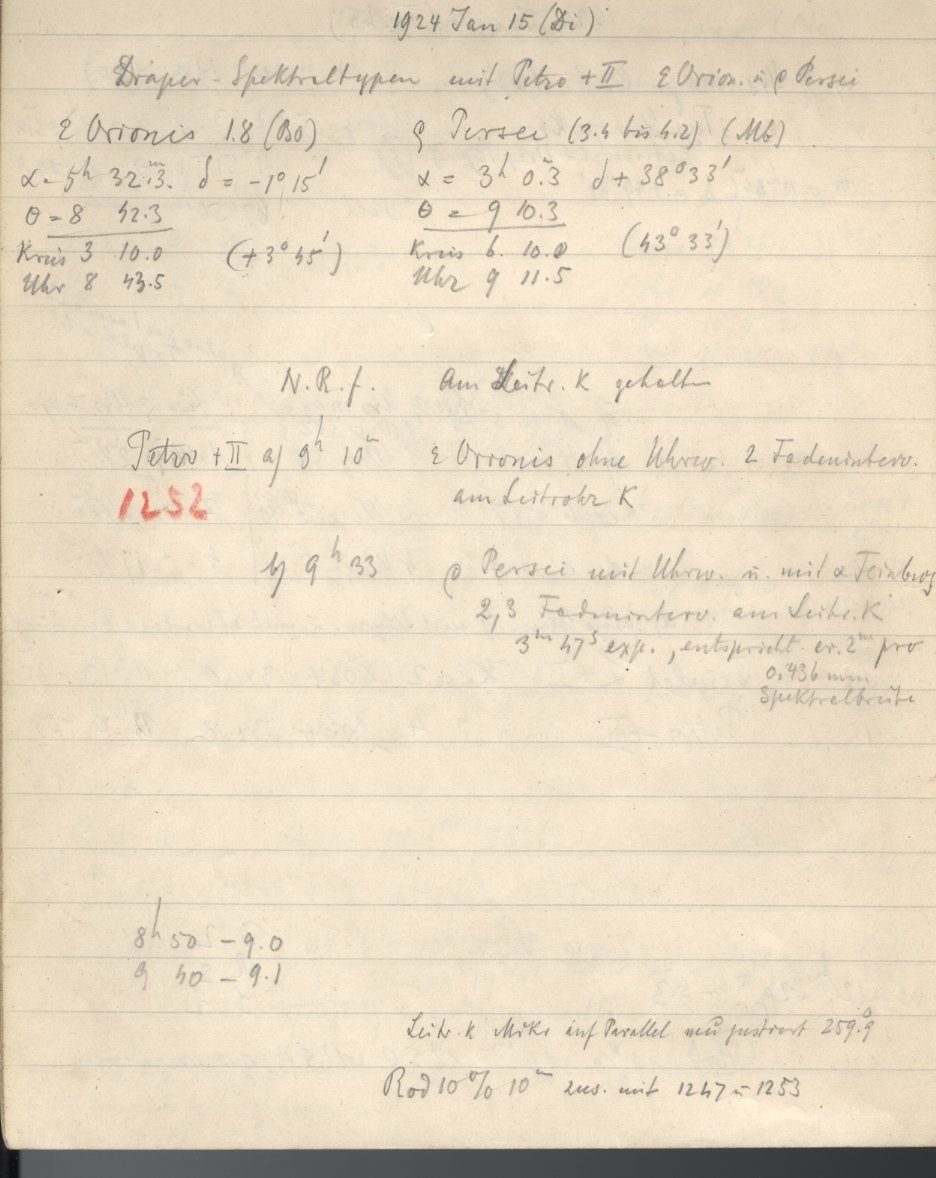 1924 Jan 15 (Di)
Draper-Spektraltypen mit Petzv + II ε Orion. u. ρ Persei
ε Orionis 1.8 (B0)
α = 5h 32m.3. δ = -1° 15'
θ = 8 42.3
Kreis 3 10.0 (+3° 45')
Uhr 8 43.5
ρ Persei (3.4 bis 4.2) (Mb)
α = 3h 0m.3 δ + 38° 33'
θ = 9 10.3
Kreis 6. 10.0 (43° 33')
Uhr 9 11.5
N.R.f. Am Leitr. K gehalten
Petzv + II a) 9h 10m ε Orionis ohne Uhrw. 2 Fadeninterv.
1252 am Leitrohr K
b) 9h 33 ρ Persei mit Uhrw. u. mit α Feinbewg
2,3 Fadeninterv. am Leitr. K
3m 47s exp., entspricht 2m pro
0.436 mm
Spektralbreite
8h 50 - 9.0
9 40 - 9.1
Leitr. K Mikr auf Parallel neu justiert 259°.9
Rod 10% 10m zus. mit 1247 u 1253